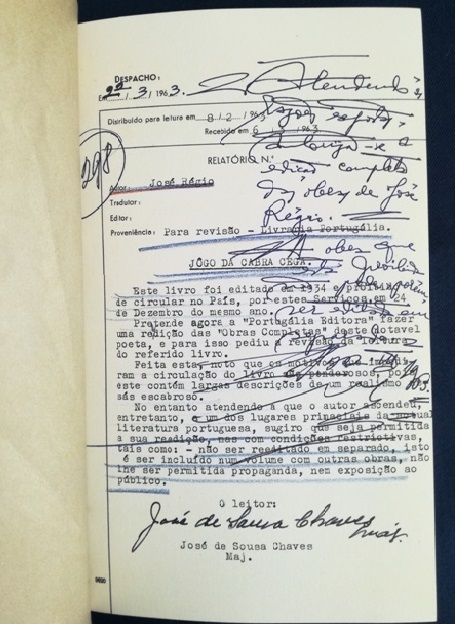 DESPACHO:
Em 22/3/1963.
Atendendo às
razões expostas,
autoriza-se a
edição completa
das obras de José
Régio.
Distribuído para leitura em 8/2/1963
Recebido em 6/3/1963
298
RELATÓRIO N.º
Autor: José Régio
Tradutor:
Editor:
Proveniência: Para revisão - Livraria Portugália.
A obra que
JÔGO DA CABRA CEGA.
Este livro foi editado em 1934 e proibido
de circular no País, por estes Serviços em 24
de Dezembro do mesmo ano.
Pretende agora a "Portugália Editora" fazer
uma redição das "Obras Completas" deste notavel
poeta, e para isso pediu a revisão da leitura
do referido livro.
Feita esta, noto que os motivos que
ram a circulação do livro são ponderosos, pois
este contém largas descrições de um realismo
escabroso.
No entanto atendendo a que o autor ascendeu,
entretanto, a um dos lugares principais da actual
literatura portuguesa, sugiro que seja permitida
a sua readição, nas com condições restrictivas,
tais como: - não ser reeditado em separado, isto
é ser incluido num volume com outras obras, não
lhe ser permitida propaganda, nem exposição ao
público.
O leitor:
José de Sousa Chaves
Maj.
José de Sousa Chaves
Maj.